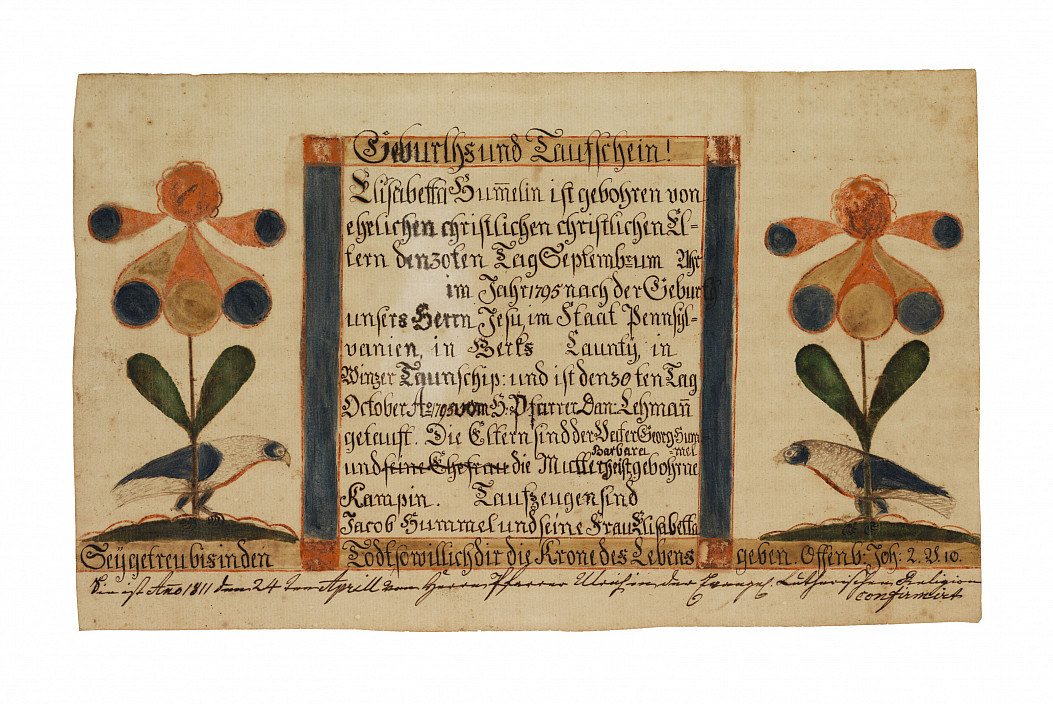 Geburths und Taufschein!
Elisabetha Hum̄elin ist gebohren von
ehelichen christlichen christlichen El-
tern den 30ten Tag Septembr: um Uhr
im Jahr 1795 nach der Geburth
unsers Herrn Jesu, im Staat Pennsyl-
vanien, in Berks Caunty, in
Winzer Taunschip: und ist den 30ten Tag
October Ao 1795 vom H: Pfarrer Dan: Lehman̄
geteufft. Die Eltern sind der Vatter Georg Hum-
Barbara mel
und seine Ehefrau die Mutter heist gebohrne
Kampin. Taufzeugen sind
Jacob Hummel und seine Frau Elisabetta
Sey getreu bis in den Todt so will ich dir die Krone des Lebens geben. Offenb: Joh: 2. V 10.
Sie ist Ano 1811 den 24ten Aprill vom Herrn Pfarrer Ulrich in der Evangel. Lutherischen Religion
confirmirt